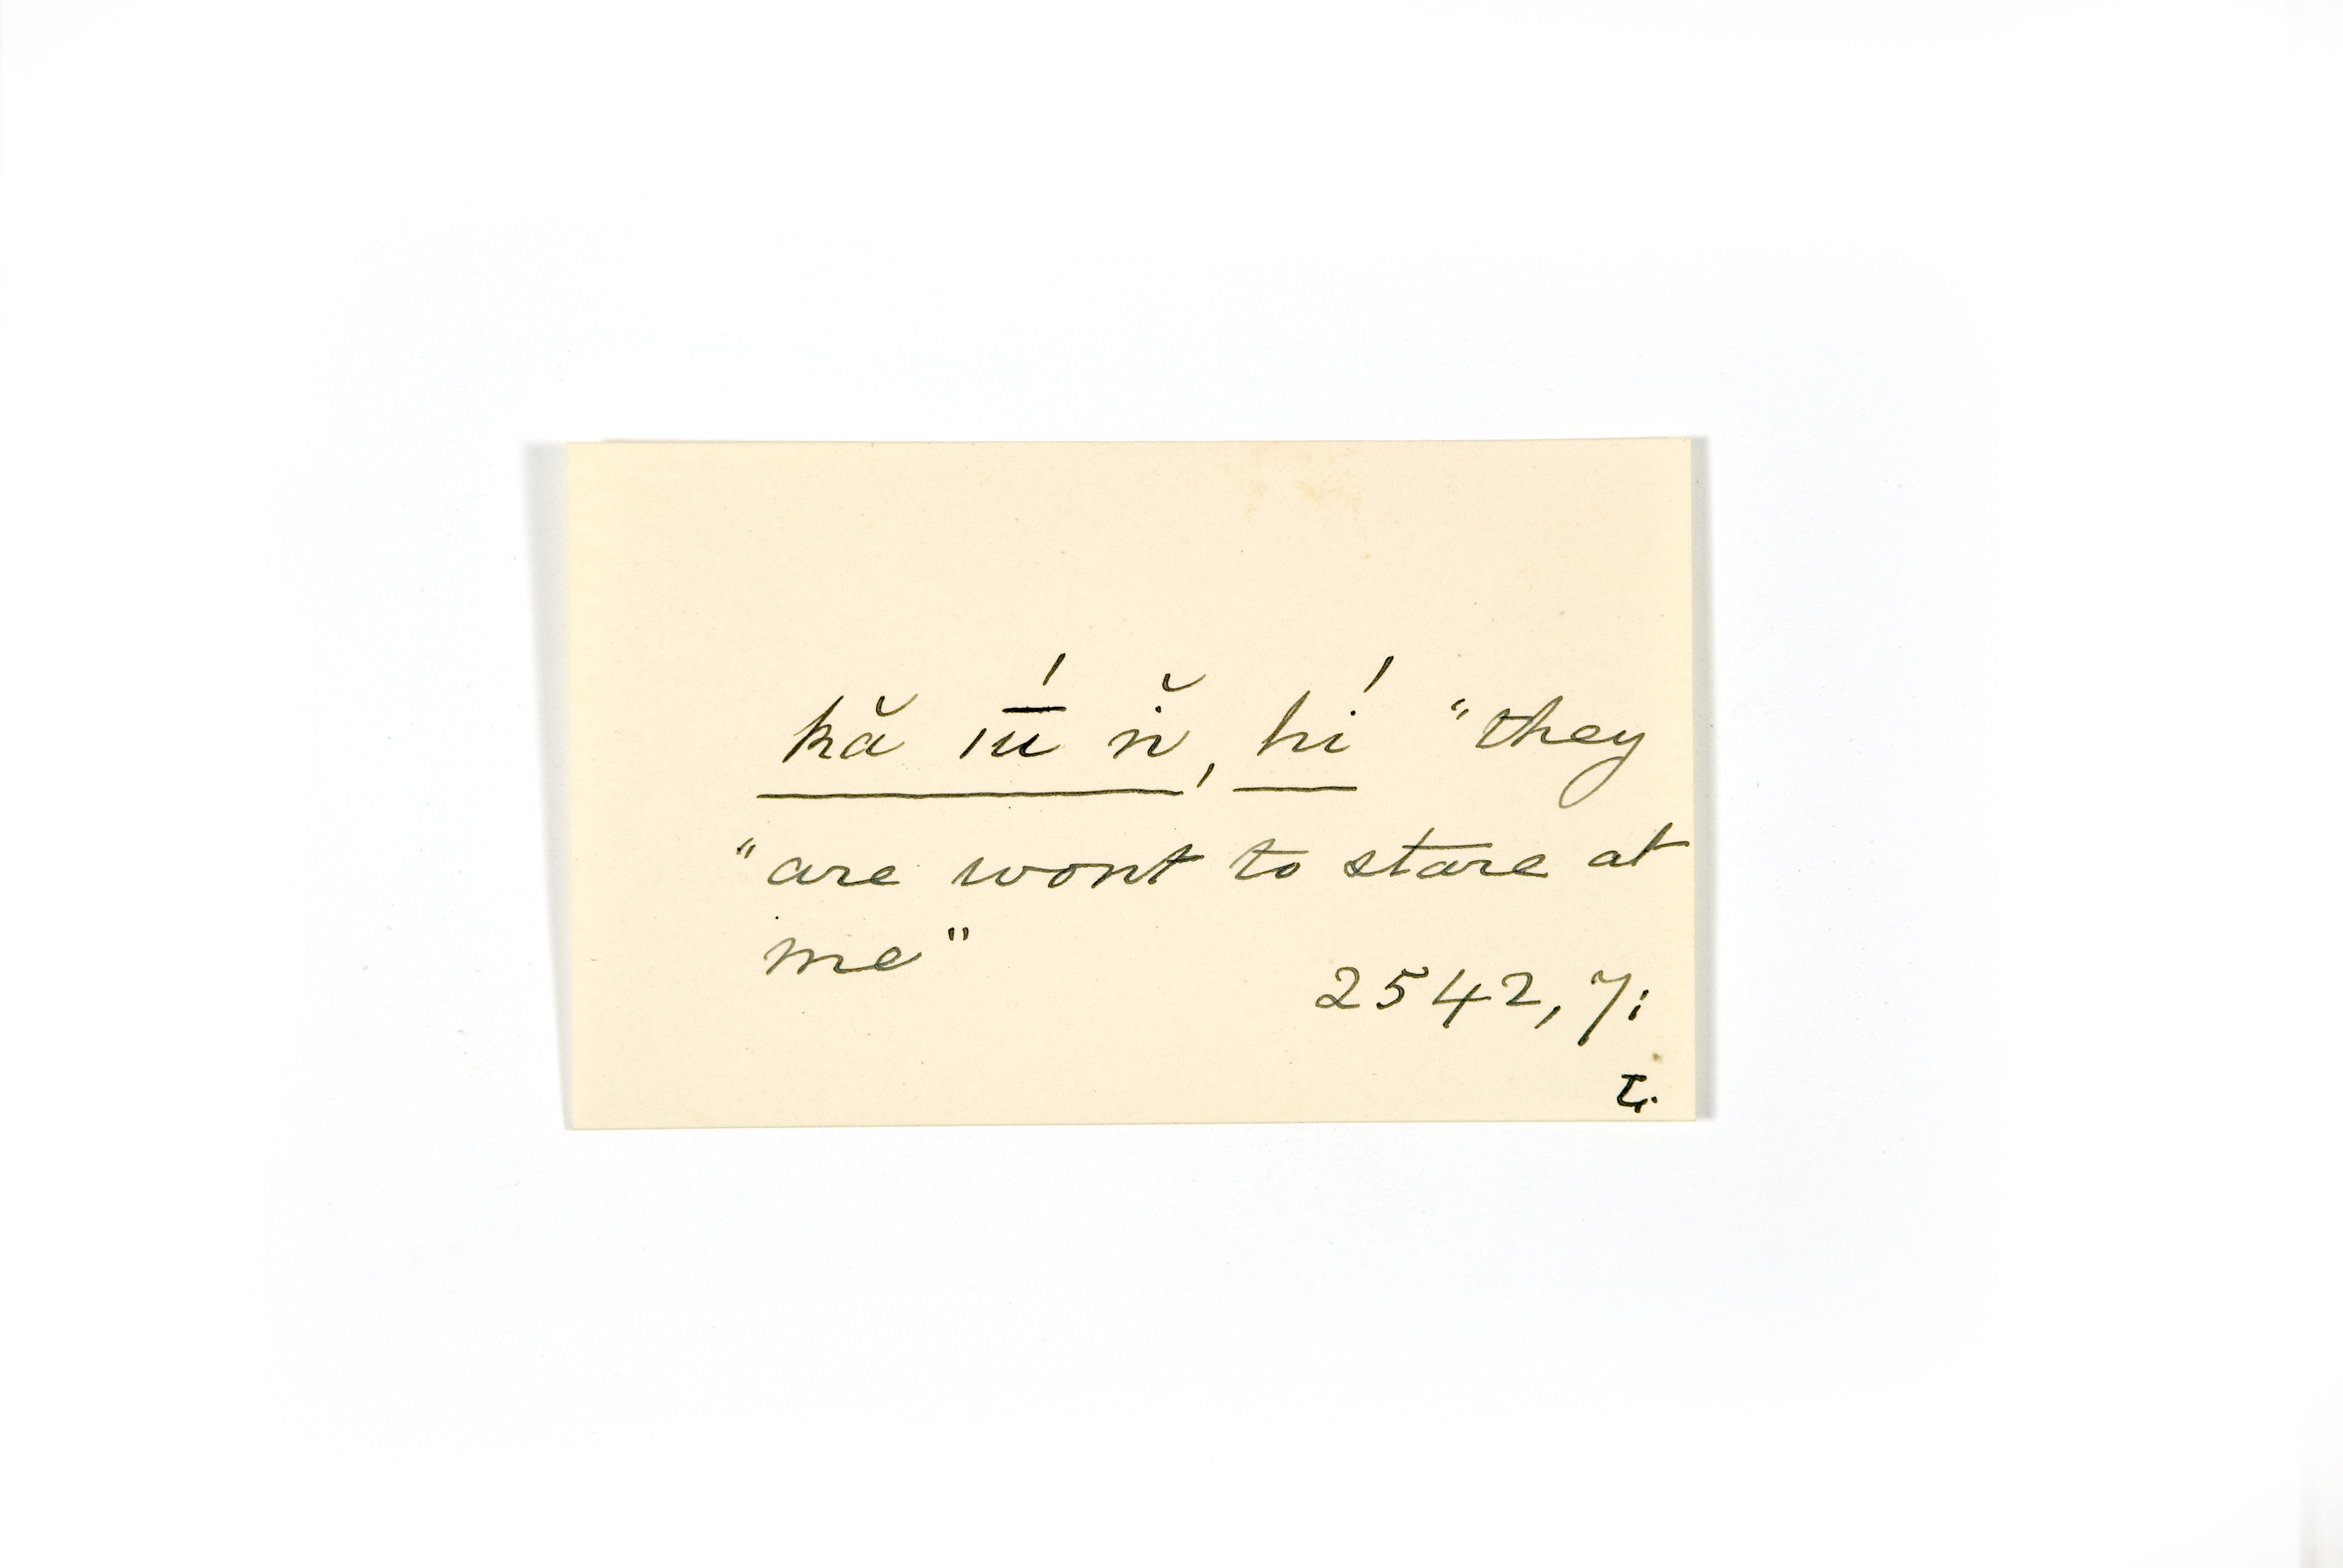 kă ıū́ nĭ, hí "they
"are wont to stare at
me"
2542, 7: